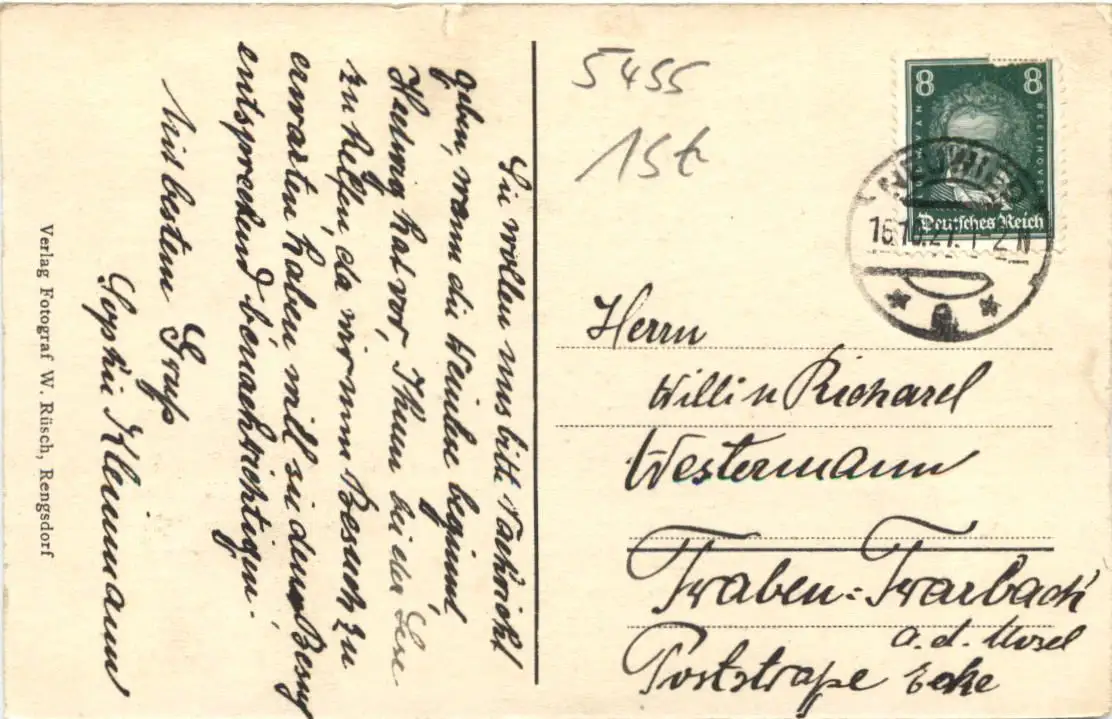 Sie wollen uns bitte Nachricht
geben, wann die Weinlese beginnt
Hedwig hat vor, Ihnen bei der Lese
zu helfen, da wir nun Besuch zu
erwarten haben will sie dann Besuch
entsprechend benachrichtigen.
Mit bestem Gruß
Sophie Kleinmann
Verlag Fotograf W. Rüsch, Rengsdorf
5455
15t
8 8
VAN BEETHOVEN
Deutsches Reich
NEUWIED
16.10.27. 1-2 N
Herrn
Willi u Richard
Westermann
Traben-Trarbach
a. d. Mosel
Poststraße Ecke